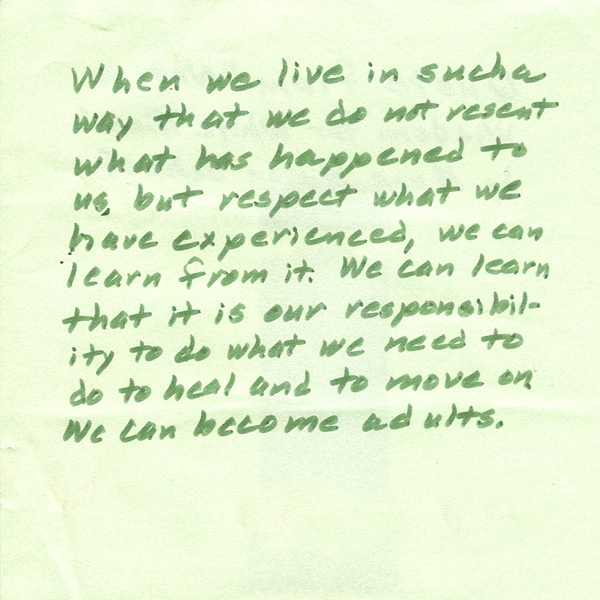 When we live in such a
way that we do not resent
what has happened to
us, but respect what we
have experienced, we can
learn from it. We can learn
that it is our responsibil-
ity to do what we need to
do to heal and to move on.
We can become adults.